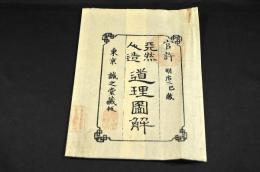 官許 明治二己歳
天然
人造 道理圖解
東京 誠之堂藏板